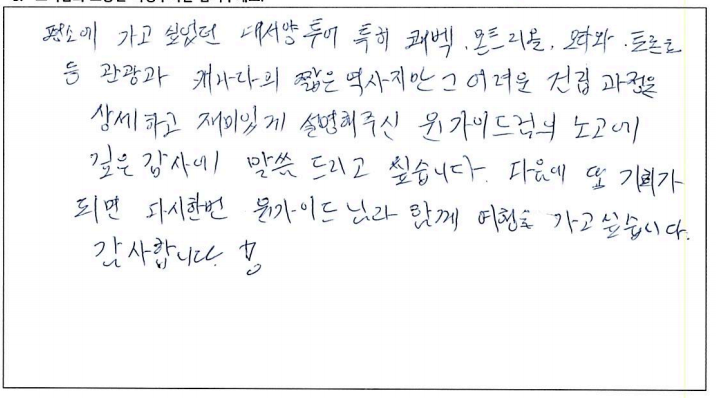 평소에 가고 싶었던 대서양 투어 특히 퀘벡. 몬트리올, 오타와. 토론토
등 관광과 캐나다의 짧은 역사지만 그 어려운 건립 과정을
상세하고 재미있게 설명해주신 윤가이드님의 노고에
깊은 감사에 말씀 드리고 싶습니다. 다음에 또 기회가
되면 다시한번 윤가이드 님과 함께 여행을 가고싶습니다.
감사합니다.